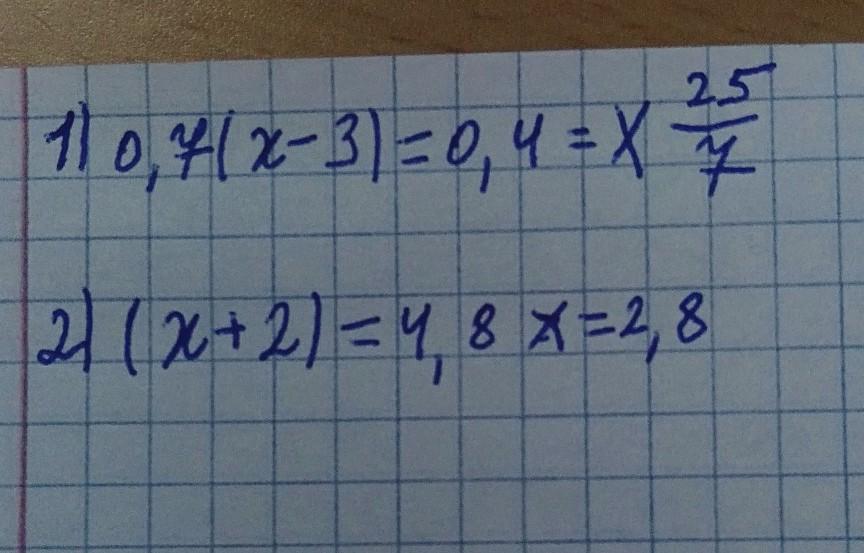 1) 0,7(x-3)=0,4=X 25/7
2) (x+2)=4,8 x=2,8